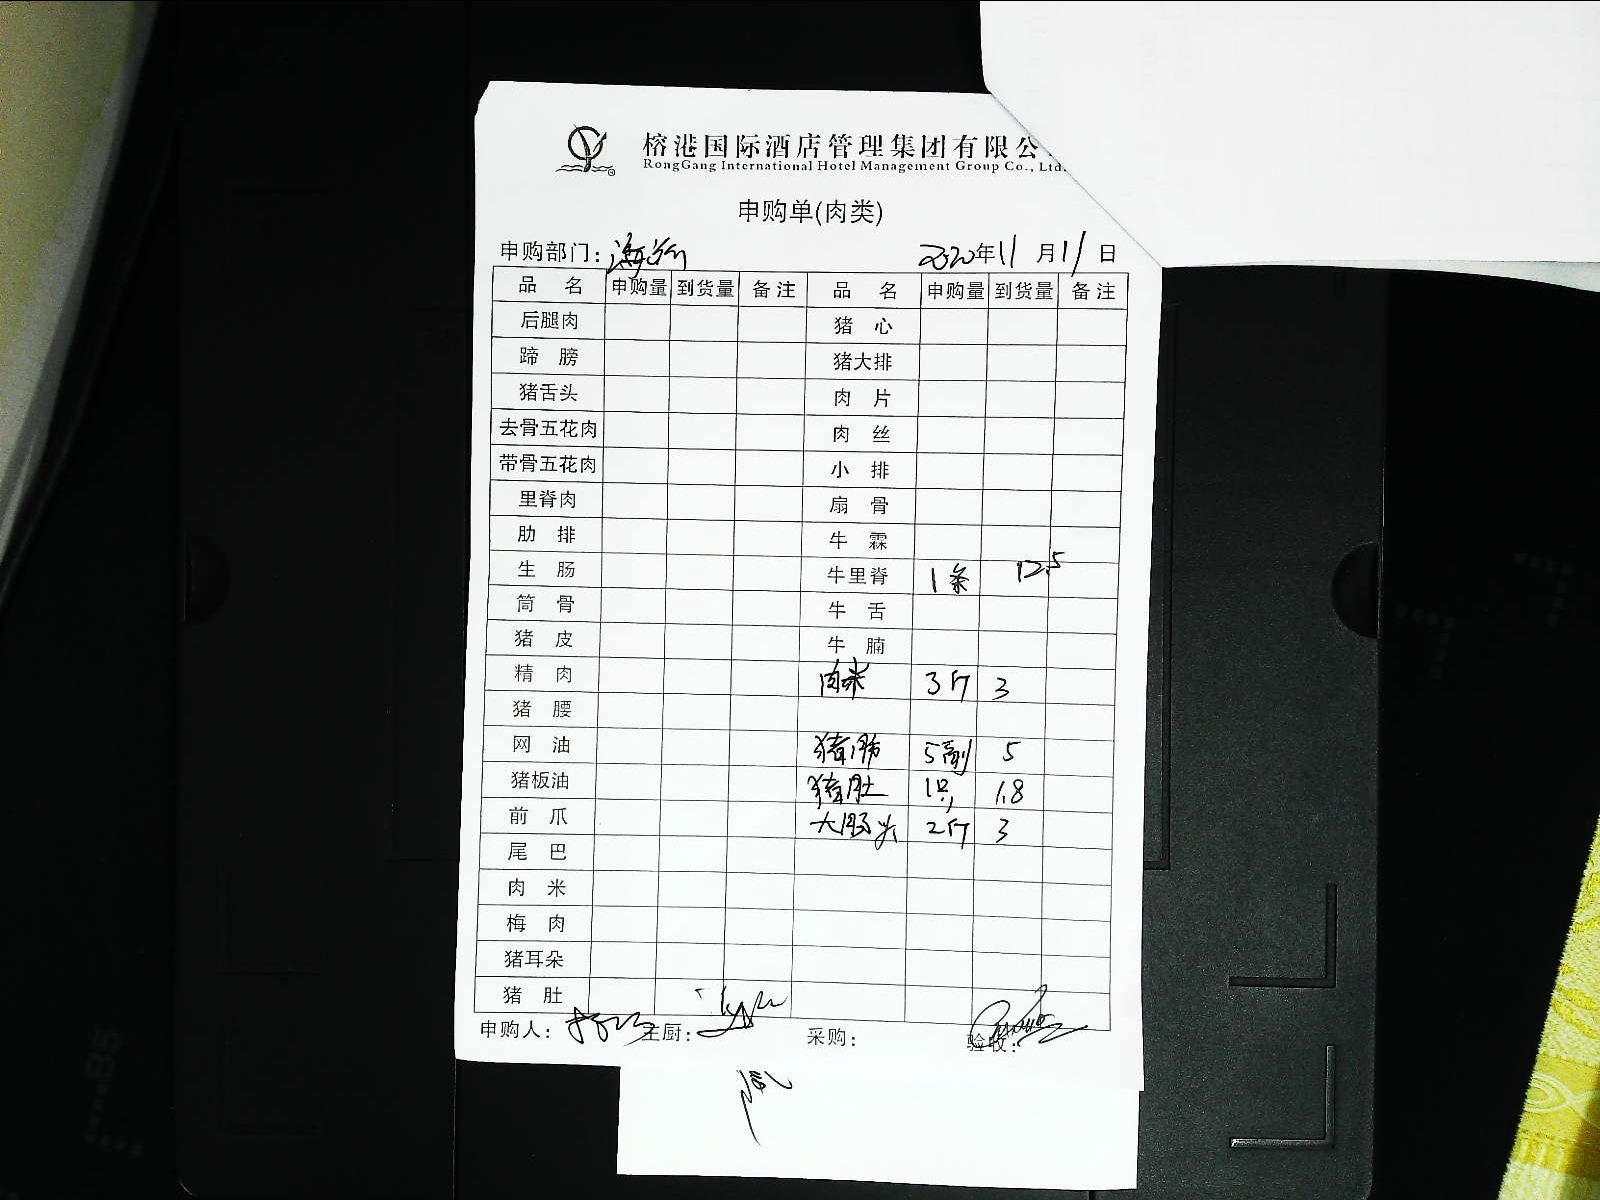 榕港国际酒店管理集团有限公
RongGang International Hotel Management Group Co., Ltd.
申购单(肉类)
申购部门: 2020年11月11日
品 名 申购量 到货量 备注 品 名 申购量 到货量 备注
后腿肉 猪 心
蹄 膀 猪大排
猪舌头 肉 片
去骨五花肉 肉 丝
带骨五花肉 小 排
里脊肉 扇 骨
肋 排 牛 霖
生 肠 牛里脊 1条 12.5
筒 骨 牛 舌
猪 皮 牛 腩
精 肉 肉米 3斤 3
猪 腰
网 油 猪肺 5副 5
猪板油 猪肚 1只 1.8
前 爪 大肠头 2斤 3
尾 巴
肉 米
梅 肉
猪耳朵
猪 肚
申购人: 主厨: 采购: 验收: